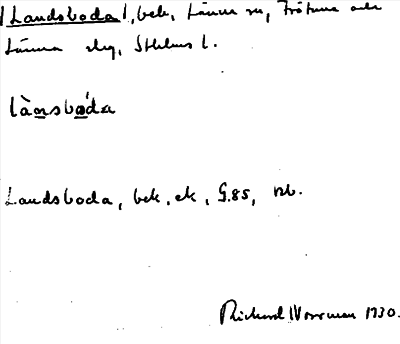 Landsboda, bek, Länna sn, Frötuna och
Länna skg, Sthlms l.
lànsbo̠da
Landsboda, bek, ek, G.85, Rb.
Richard Norrman 1930.